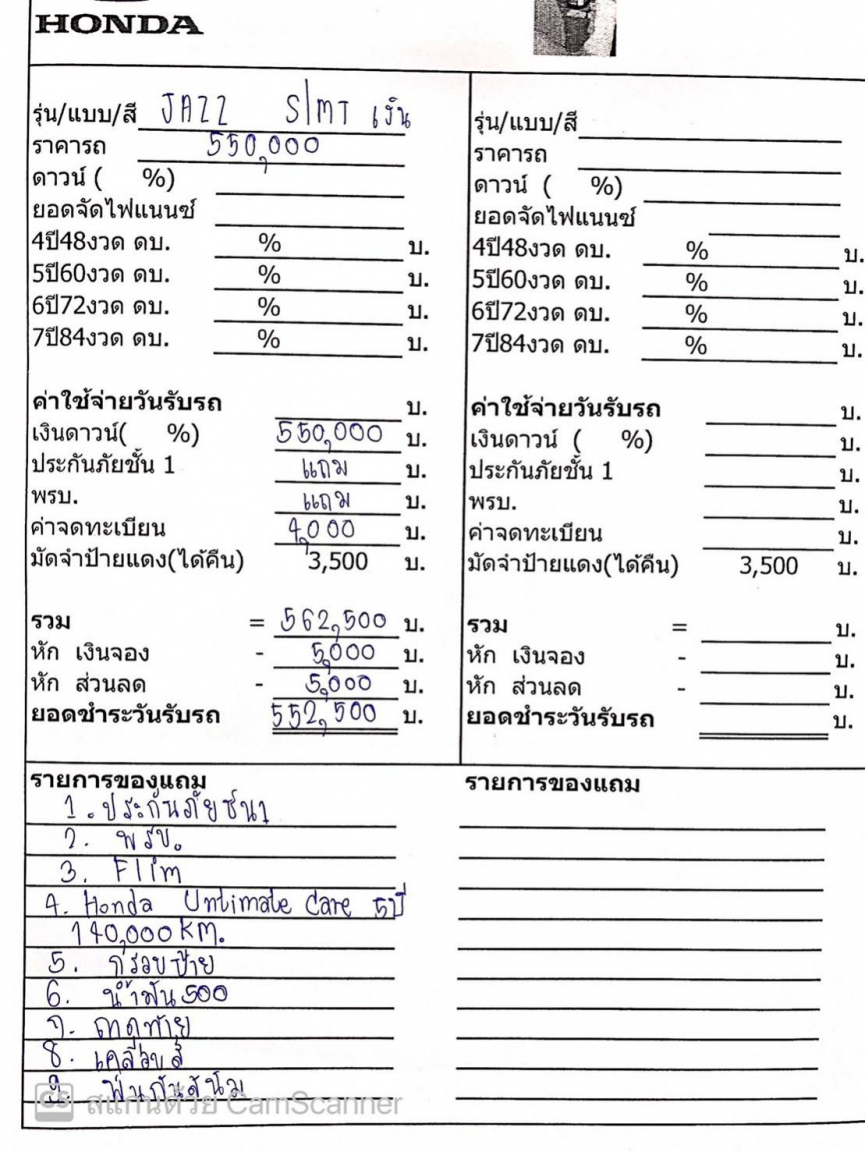 HONDA
รุ่น/แบบ/สี JAZZ S/MT เงิน
ราคารถ 550,000
ดาวน์ ( %)
ยอดจัดไฟแนนซ์
4ปี48งวด ดบ. % บ.
5ปี60งวด ดบ. % บ.
6ปี72งวด ดบ. % บ.
7ปี84งวด ดบ. % บ.
ค่าใช้จ่ายวันรับรถ บ.
เงินดาวน์( %) 550,000 บ.
ประกันภัยชั้น 1 แถม บ.
พรบ. แถม บ.
ค่าจดทะเบียน 4,000 บ.
มัดจำป้ายแดง(ได้คืน) 3,500 บ.
รวม = 562,500 บ.
หัก เงินจอง - 5,000 บ.
หัก ส่วนลด - 5,000 บ.
ยอดชำระวันรับรถ 552,500 บ.
รุ่น/แบบ/สี
ราคารถ
ดาวน์ ( %)
ยอดจัดไฟแนนซ์
4ปี48งวด ดบ. % บ.
5ปี60งวด ดบ. % บ.
6ปี72งวด ดบ. % บ.
7ปี84งวด ดบ. % บ.
ค่าใช้จ่ายวันรับรถ บ.
เงินดาวน์ ( %) บ.
ประกันภัยชั้น 1 บ.
พรบ. บ.
ค่าจดทะเบียน บ.
มัดจำป้ายแดง(ได้คืน) 3,500 บ.
รวม = บ.
หัก เงินจอง - บ.
หัก ส่วนลด - บ.
ยอดชำระวันรับรถ บ.
รายการของแถม
1. ประกันภัยชั้น1
2. พรบ.
3. Flim
4. Honda Untimate Care 5ปี
140,000 KM.
5. กรอบป้าย
6. น้ำมัน 500
7. ถาดท้าย
8. เคลือบสี
9. พ่นกันสนิม
รายการของแถม
CS สแกนด้วย CamScanner